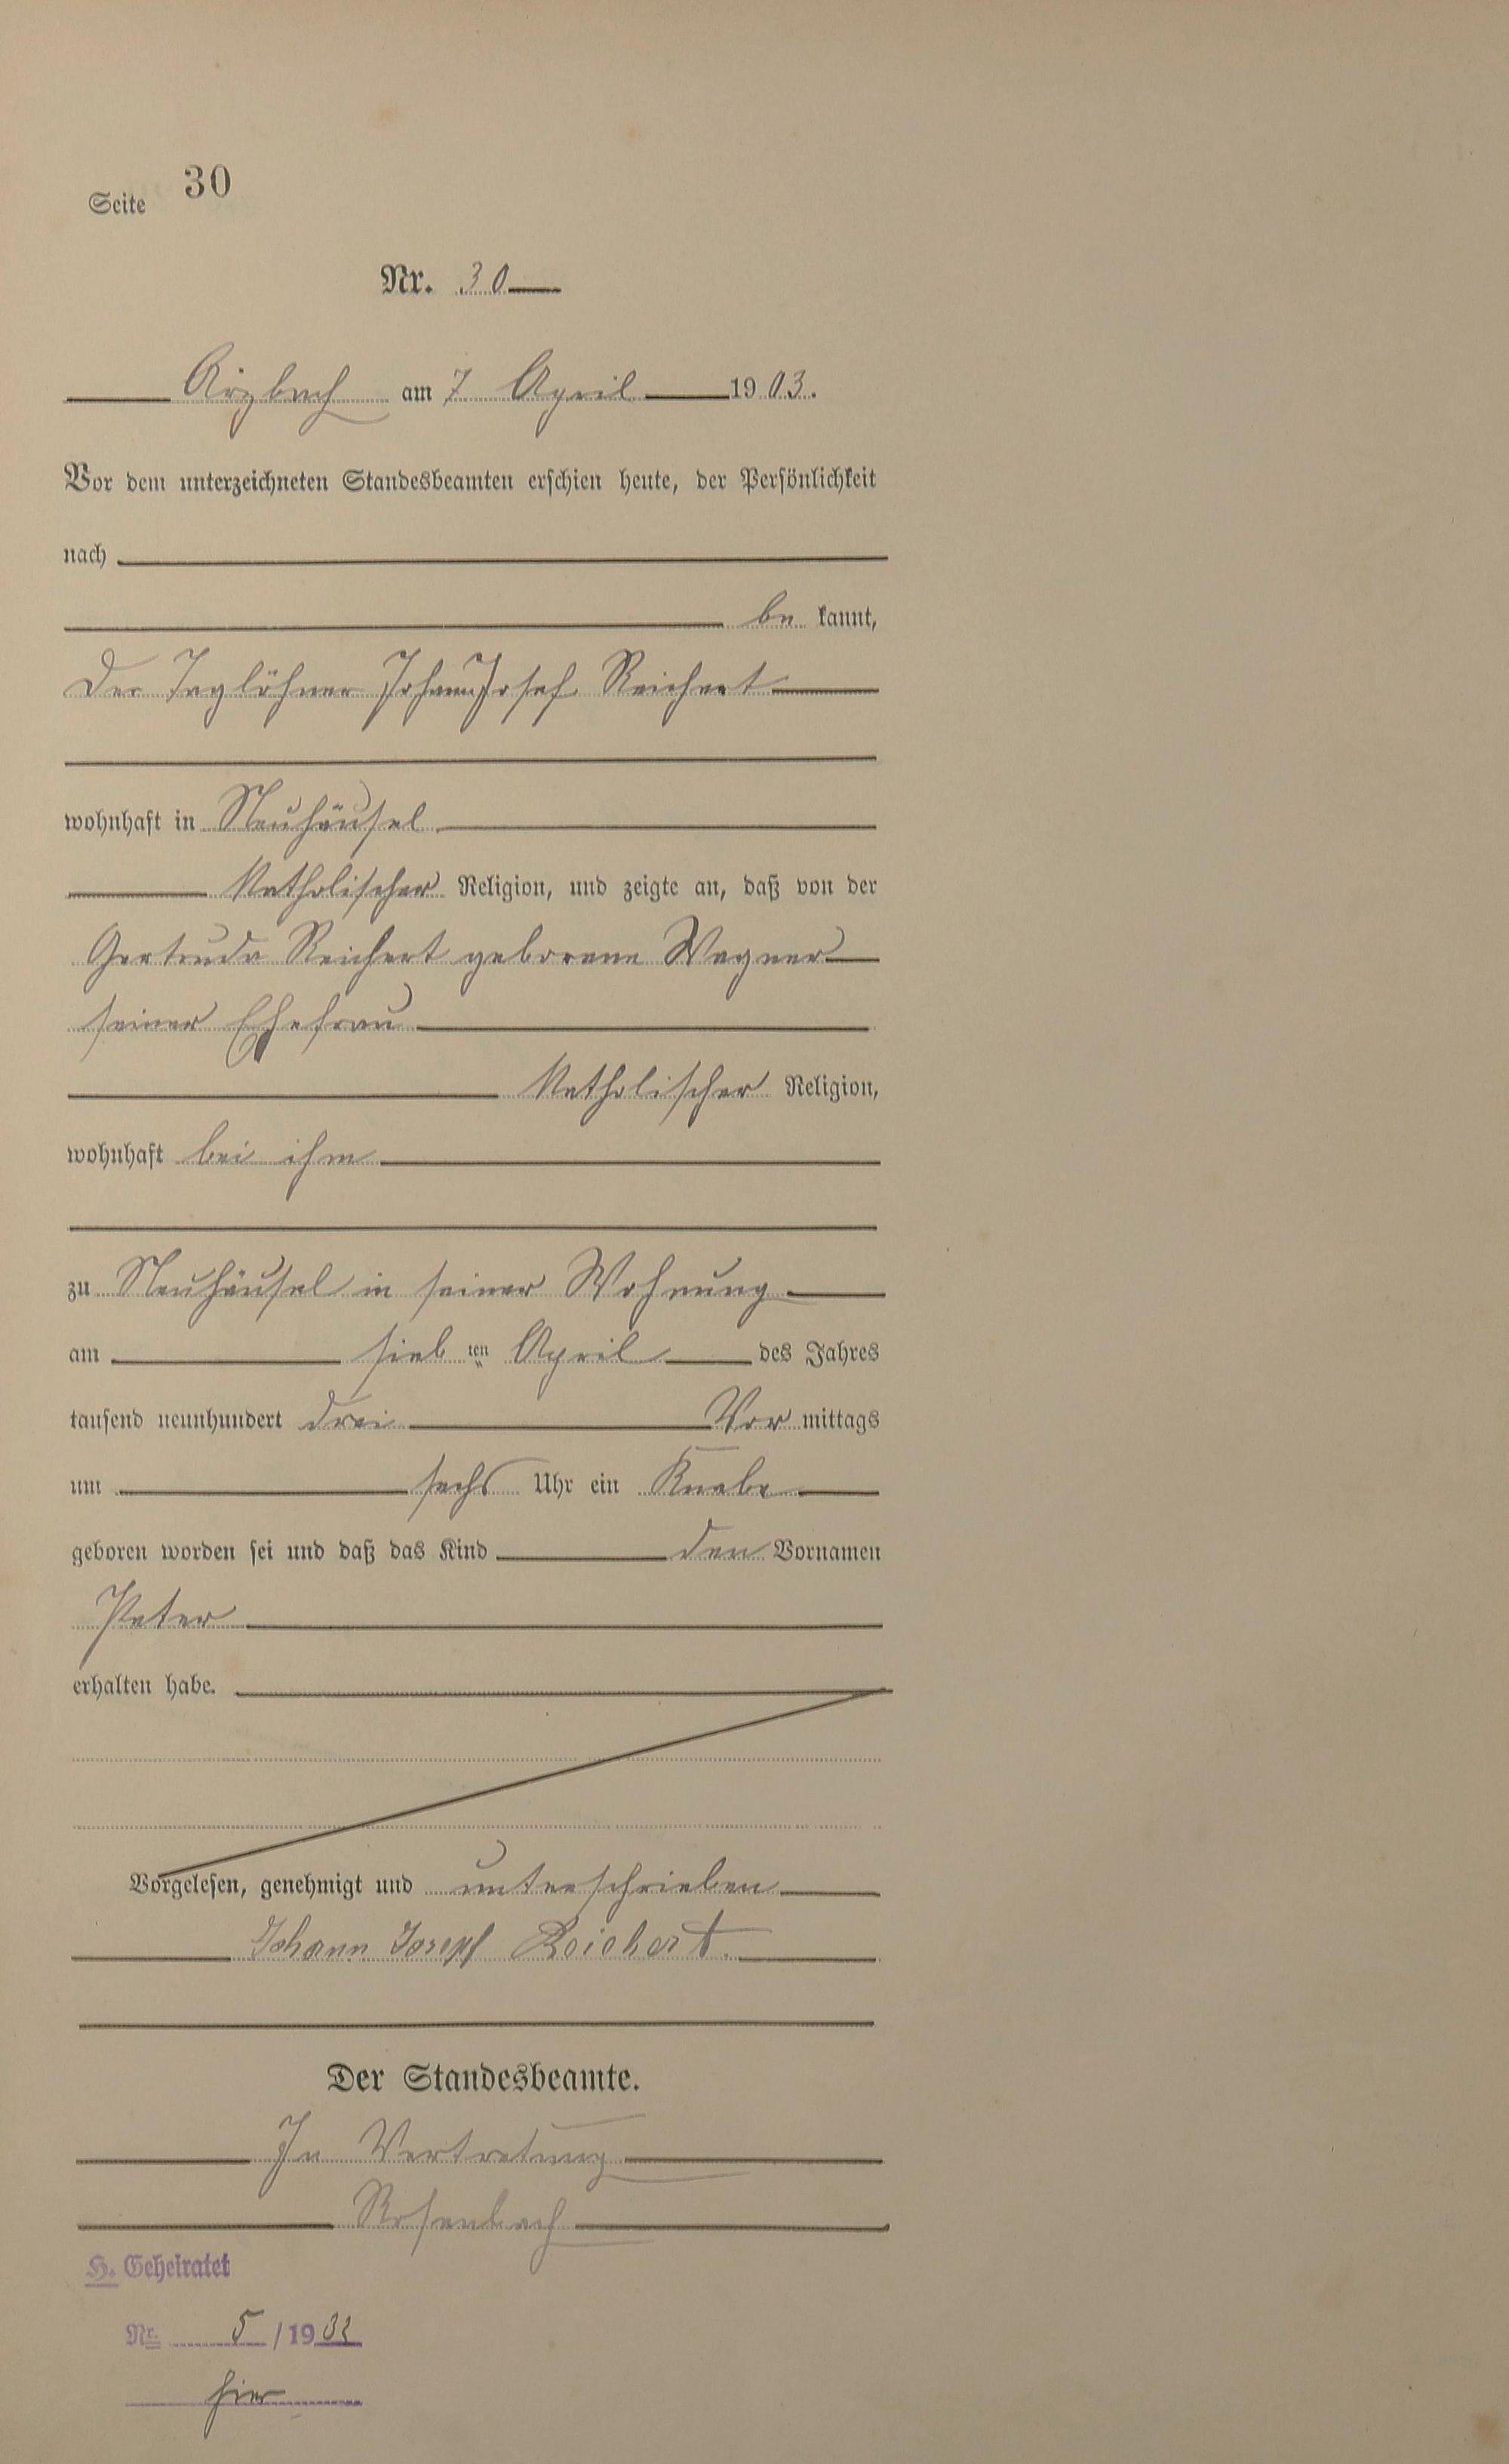 Seite 30
Nr. 30
Arzbach am 7 April 1903.
Vor dem unterzeichneten Standesbeamten erschien heute, der Persönlichkeit
nach
be kannt,
der Taglöhner Johann Josef Reichert
wohnhaft in Neuhäusel
Katholischer Religion, und zeigte an, daß von der
Gertrude Reichert geborene Wagner
seiner Ehefrau
Katholischer Religion,
wohnhaft bei ihm
zu Neuhäusel in seiner Wohnung
am sieb ten April des Jahres
tausend neunhundert drei Vor mittags
um sechs Uhr ein Knabe
geboren worden sei und daß das Kind den Vornamen
Peter
erhalten habe.
Vorgelesen, genehmigt und unterschrieben
Johann Josepf Reichert.
Der Standesbeamte.
In Vertretung
Rosenbach
H. Geheiratet
Nr. 5 / 1932
hier